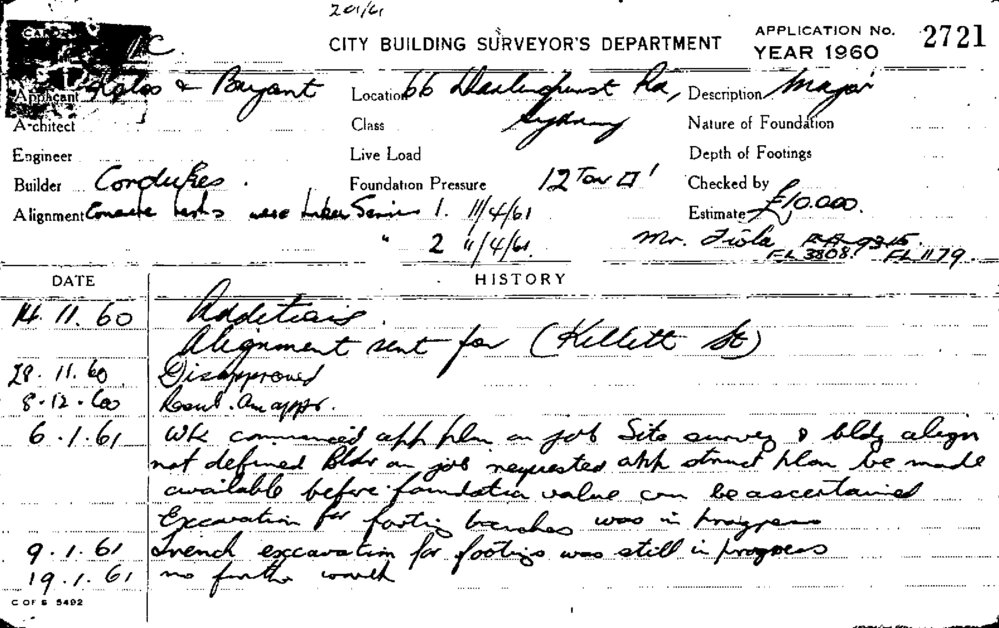 201/61
CITY BUILDING SURVEYOR'S DEPARTMENT
APPLICATION No. 2721
YEAR 1960
Applicant & Bryant
Location 66 Darlinghurst Rd,
Sydney
Description Major
Architect
Class
Nature of Foundation
Engineer
Live Load
Depth of Footings
Builder Cordukes.
Foundation Pressure 12 Ton □'
Checked by
Alignment Concrete tests were taken Series 1. 11/4/61
Estimate £10.000.
" 2 11/4/61.
Mr. FL 3808. FL 1179.
DATE
HISTORY
14.11.60 Additions.
Alignment sent for (Kellett St)
28.11.60 Disapproved
8.12.60 appr.
6.1.61 Wk commenced app plan on job Site survey & bldg align
not defined Bldr on job requested app struct plan be made
available before foundation value can be ascertained
Excavation for footing trenches was in progress
9.1.61 Trench excavation for footings was still in progress
19.1.61 no further work
C OF S 5492